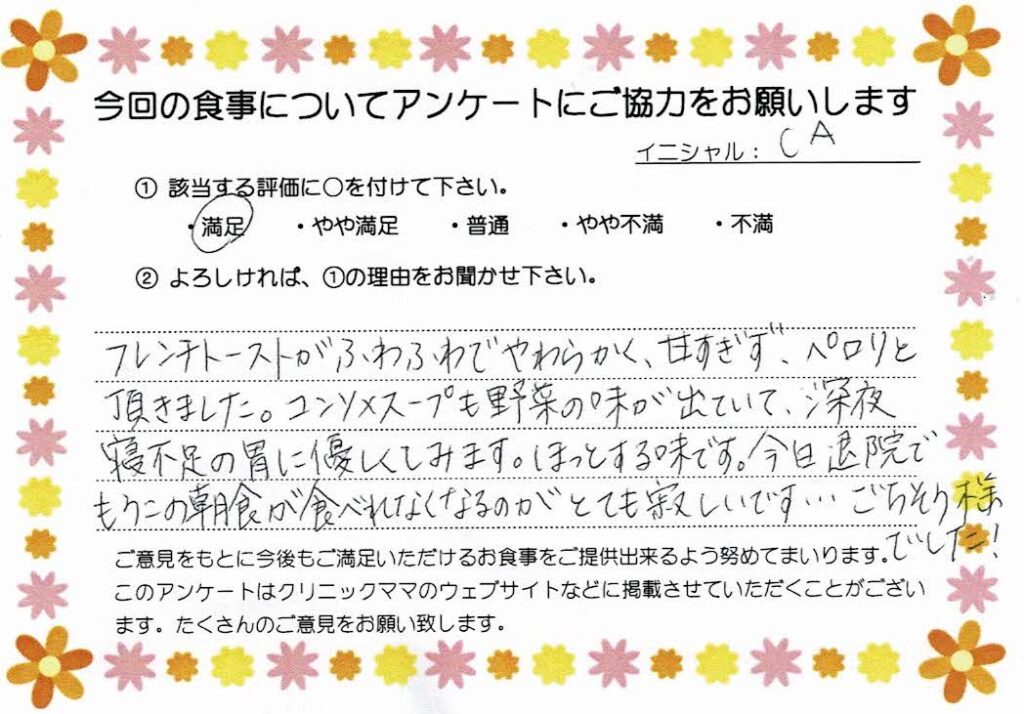 今回の食事についてアンケートにご協力をお願いします
イニシャル： CA
① 該当する評価に○を付けて下さい。
・満足 ・やや満足 ・普通 ・やや不満 ・不満
② よろしければ、①の理由をお聞かせ下さい。
フレンチトーストがふわふわでやわらかく、甘すぎず、ペロリと
頂きました。コンソメスープも野菜の味が出ていて、深夜
寝不足の胃に優しくしみます。ほっとする味です。今日退院で
もうこの朝食が食べれなくなるのがとても寂しいです… ごちそう様
でした！
ご意見をもとに今後もご満足いただけるお食事をご提供出来るよう努めてまいります。
このアンケートはクリニックママのウェブサイトなどに掲載させていただくことがござい
ます。たくさんのご意見をお願い致します。